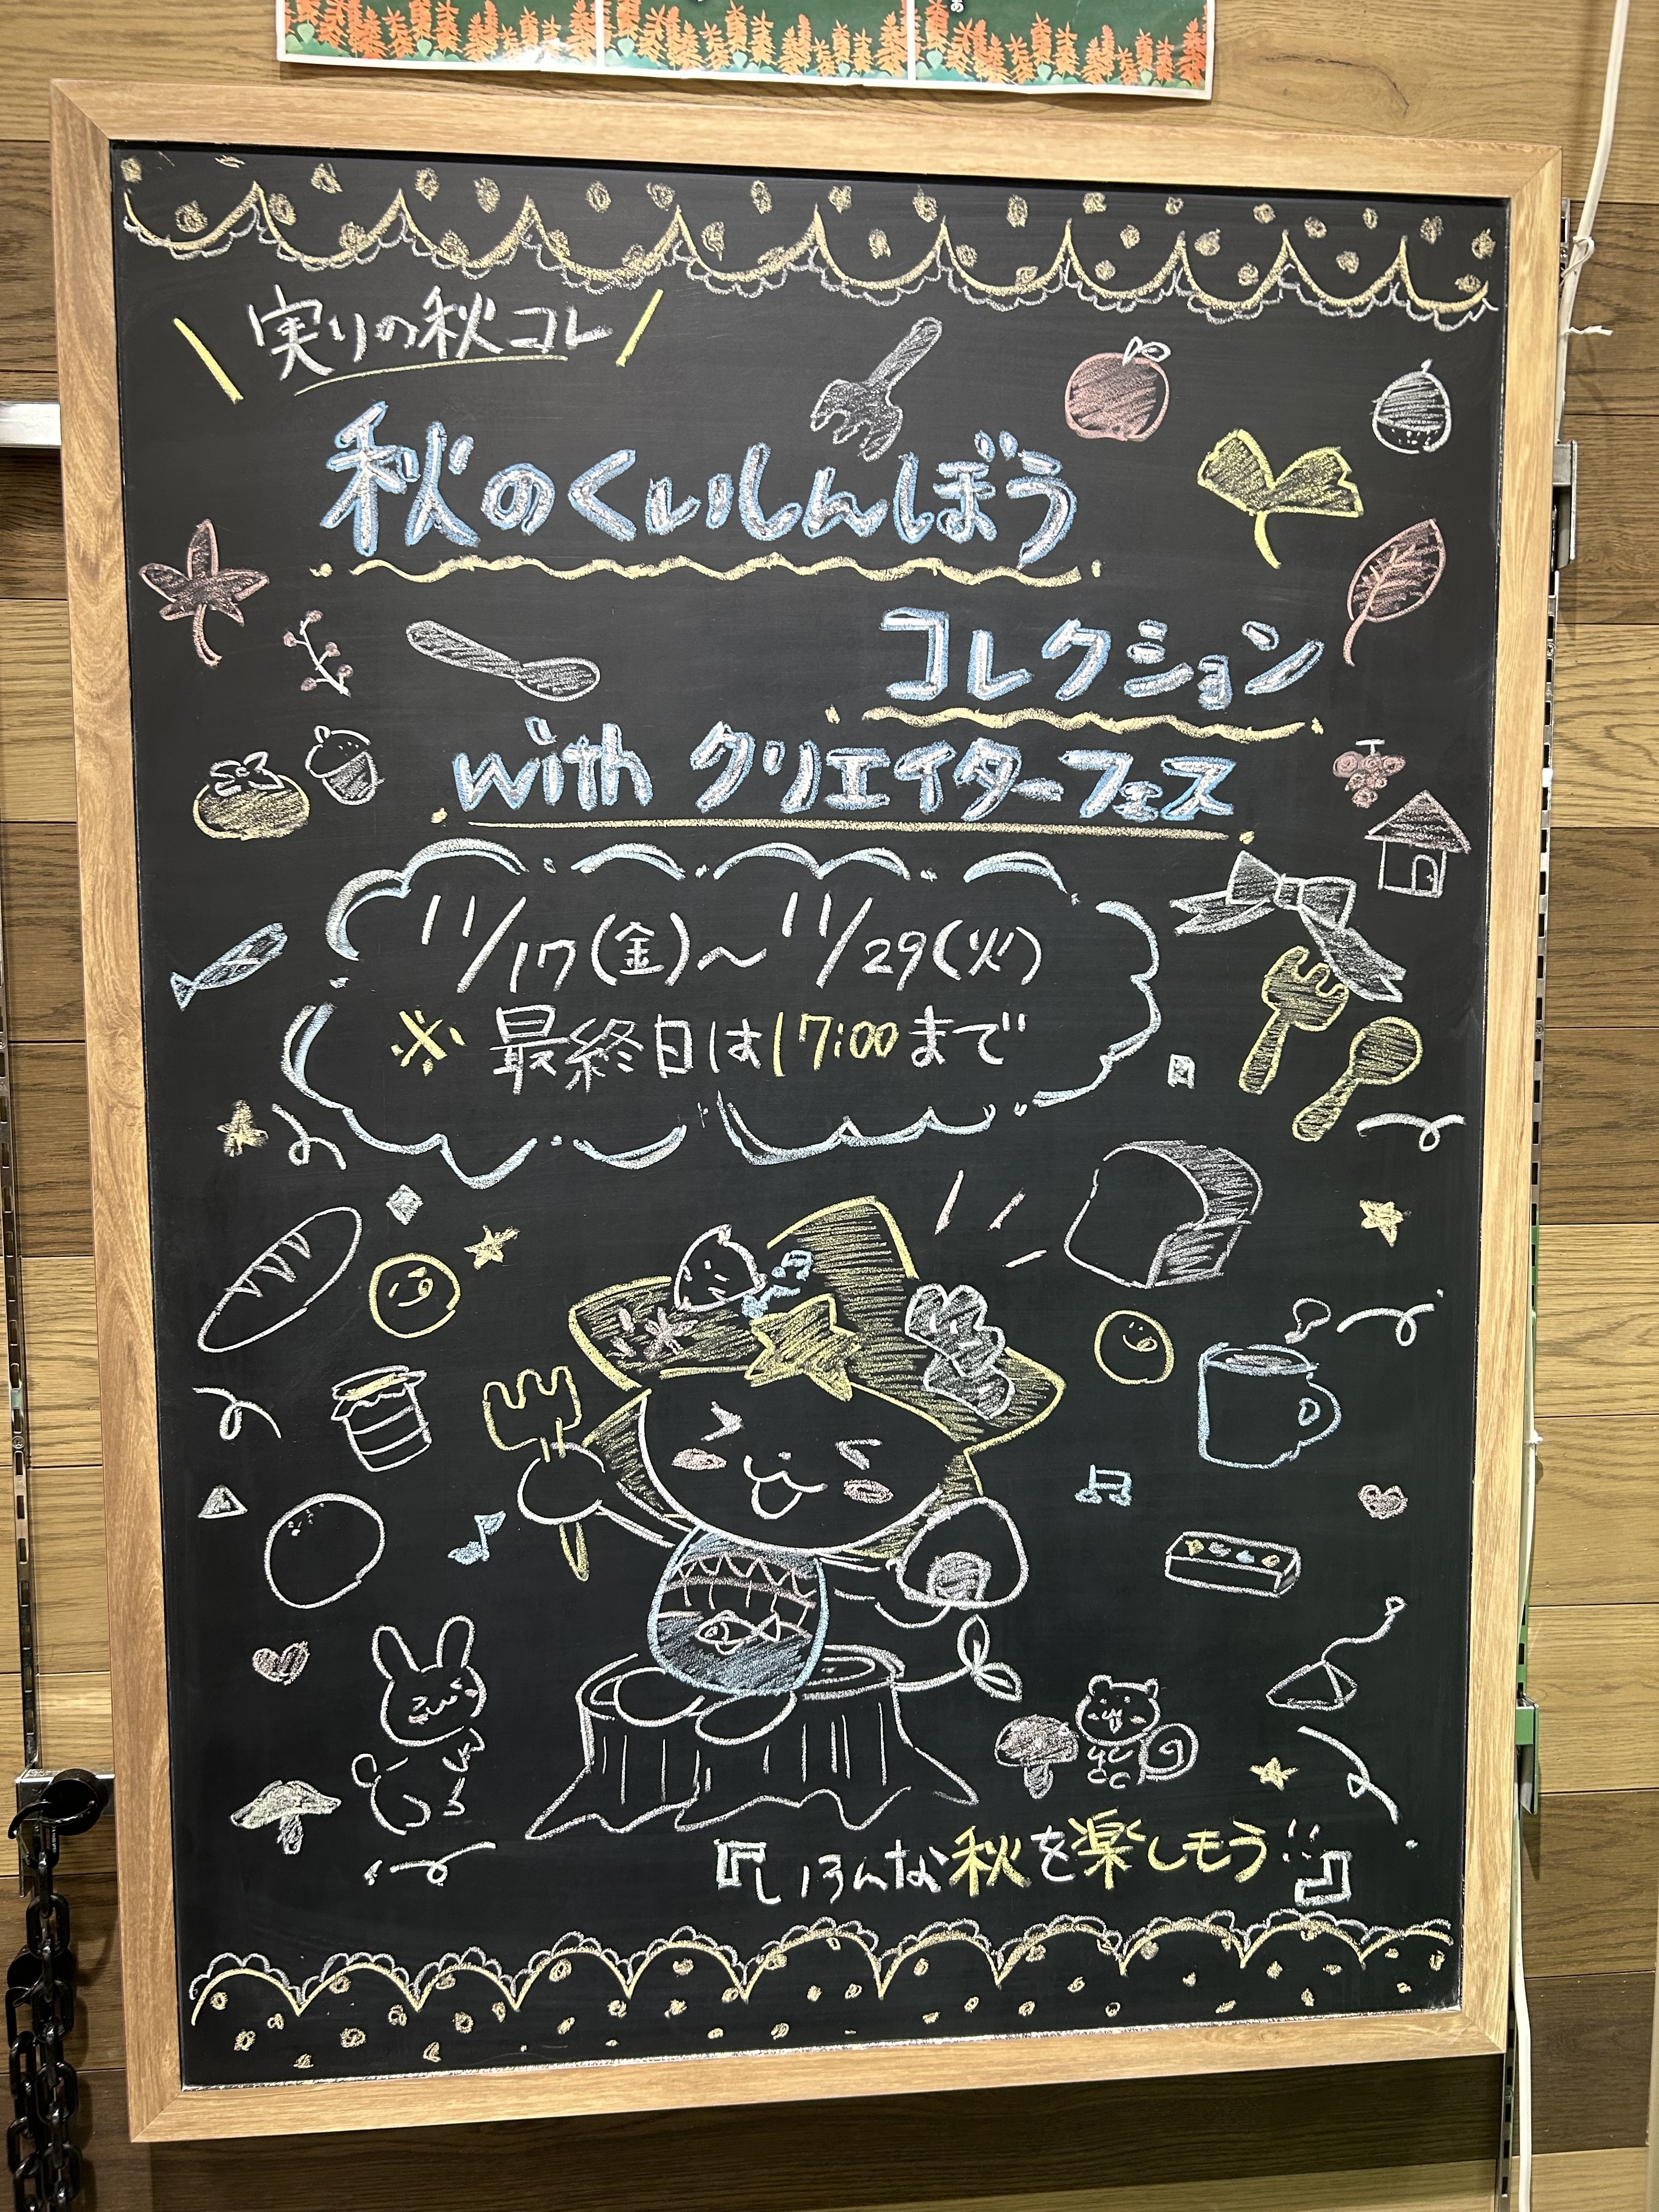 実りの秋コレ
秋のくいしんぼう
コレクション
with クリエイターフェス
11/17(金)〜11/29(火)
※最終日は17:00まで
『いろんな秋を楽しもう!!』